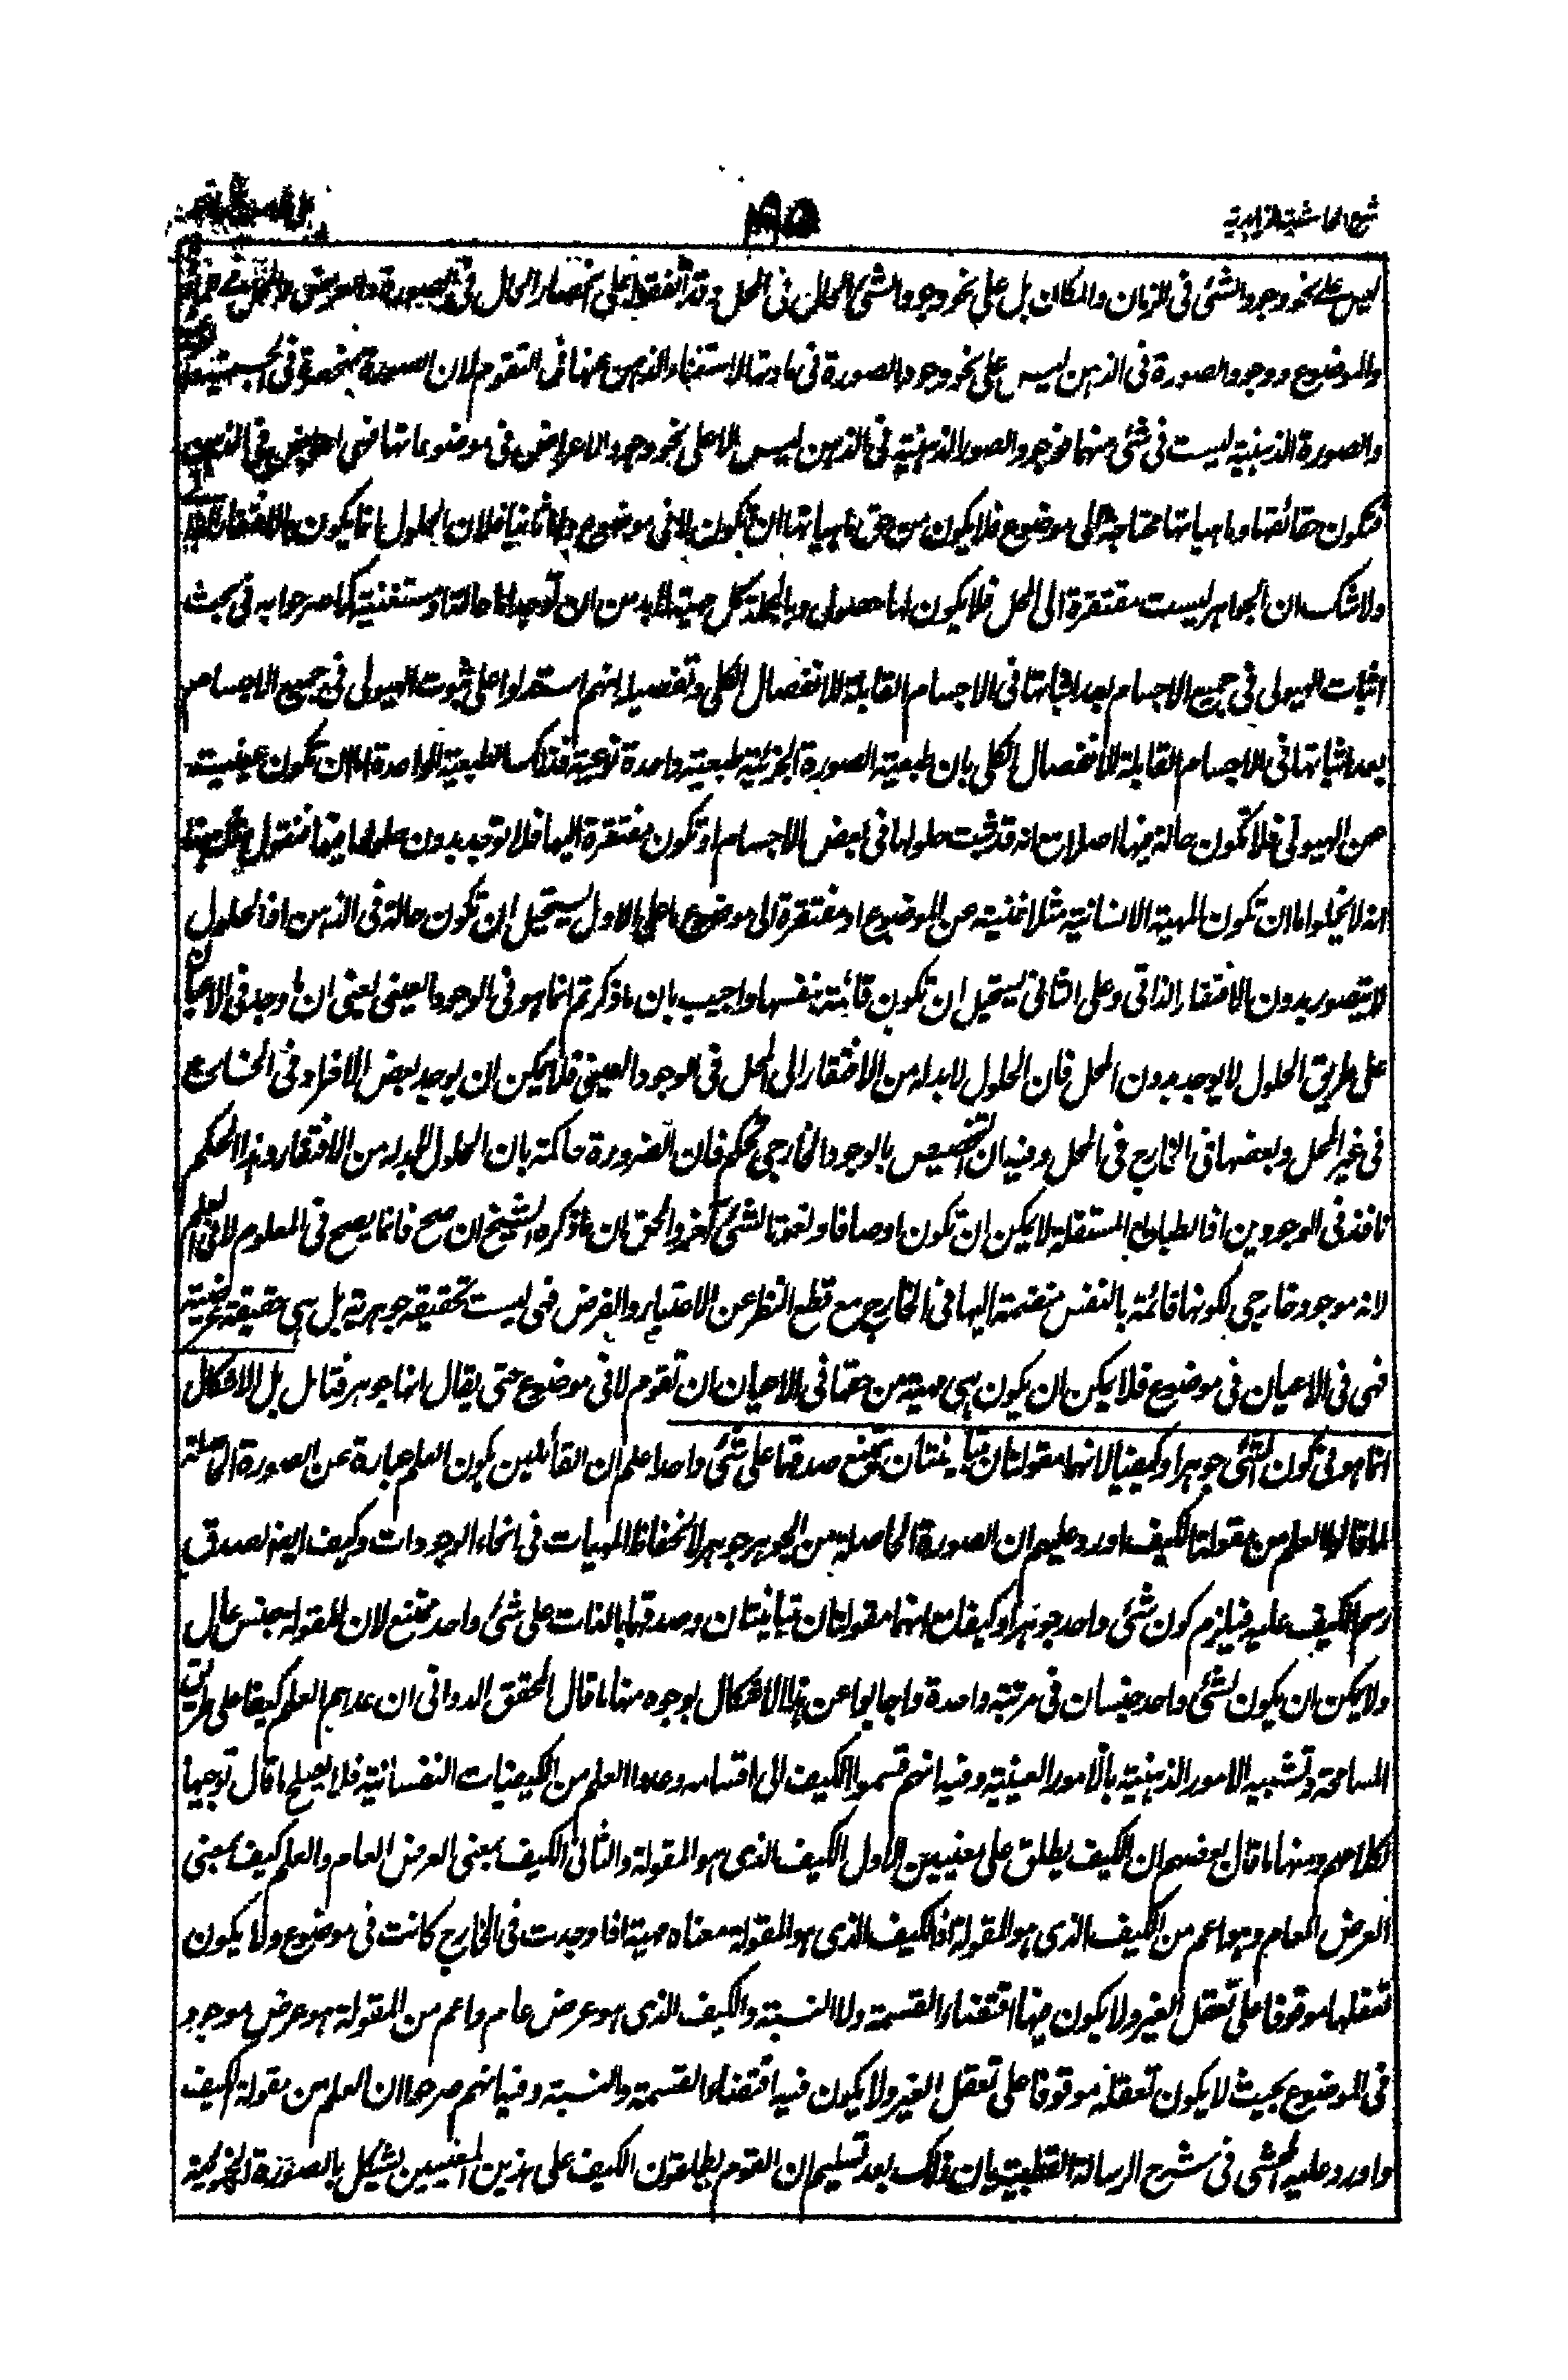 شرح الحاشية الزاهدية
ليس على نحو وجود الشئ فى الزمان والمكان بل على نحو وجود الشئ الحال فى المحل وقد اتفقوا على انحصار الحال فى الصورة والعرض والمحل فى
والموضوع ووجود الصورة فى الذهن ليس على نحو وجود الصورة فى مادتها لاستغناء الذهن عنها فى التقوم لان الصورة منحصرة فى الجسمية
والصورة الذهنية ليست فى شئ منهما فوجود الصور الذهنية فى الذهن ليس الا على نحو وجود الاعراض فى موضوعاتها فهى اعراض فى الذهن
فتكون حقائقها وماهياتها محتاجة الى موضوع فلا يكون من حق ماهياتها ان تكون لا فى موضوع واما ثانيا فلان الحلول انما يكون بالافتقار
ولا شك ان الجواهر ليست مفتقرة الى المحل فلا يكون لها حصول وبالجملة كل مهية لابد من ان توجد اما حالة او مستغنية كما صرحوا به فى بحث
اثبات الهيولى فى جميع الاجسام بعد اثباتها فى الاجسام القابلة للانفصال الفكى وتفصيله انهم استدلوا على ثبوت الهيولى فى جميع الاجسام
بعد اثباتها فى الاجسام القابلة للانفصال الفكى بان طبيعة الصورة الجرمية طبيعة واحدة نوعية فتلك الطبيعة الواحدة اما ان تكون غنية
عن الهيولى فلا تكون حالة فيها اصلا مع انه قد ثبت حلولها فى بعض الاجسام او تكون مفتقرة اليها فلا توجد بدون حلولها فيها فنقول
انه لا يخلوا ما ان تكون المهية الانسانية مثلا غنية عن الموضوع او مفتقرة الى موضوع ما على الاول يستحيل ان تكون حالة فى الذهن اذ الحلول
لا يتصور بدون الافتقار الذاتى وعلى الثانى يستحيل ان تكون قائمة بنفسها واجيب بان ما ذكرتم انما هو فى الوجود العينى يعنى ان ما وجد فى الاعيان
على طريق الحلول لا يوجد بدون المحل فان الحلول لا بد له من الافتقار الى المحل فى الوجود العينى فلا يمكن ان يوجد بعض الافراد فى الخارج
فى غير المحل وبعضها فى الخارج فى المحل وفيه ان التخصيص بالوجود الخارجى تحكم فان الضرورة حاكمة بان الحلول لا بد له من الافتقار وهذا الحكم
نافذ فى الوجودين اذ الطبائع المستقلة لا يمكن ان تكون اوصافا ونعوتا لشئ آخر والحق ان ما ذكره الشيخ ان صح فانما يصح فى المعلوم لا فى العلم
لانه موجود خارجى لكونها قائمة بالنفس منضمة اليها فى الخارج مع قطع النظر عن الاعتبار والفرض فهى ليست تحقيقة جوهرية بل هى حقيقة عرضية
فهى فى الاعيان فى موضوع فلا يمكن ان يكون هى مهية من حقها فى الاعيان ان تقوم لا فى موضوع حتى يقال انها جوهر فتامل بل الاشكال
انما هو فى كون الشئ جوهرا وكيفيا لانهما مقولتان متباينتان يمتنع صدقهما على شئ واحد اعلم ان القائلين بكون العلم عبارة عن الصورة الحاصلة
لما قالوا العلم من مقولة الكيف اورد عليهم ان الصورة الحاصلة من الجوهر جوهر لانحفاظ المهيات فى انحاء الوجودات وكيف ايضا لصدق
رسم الكيف عليه فيلزم كون شئ واحد جوهرا وكيفا مع انهما مقولتان متباينتان وصدقهما بالذات على شئ واحد ممتنع لان المقولة جنس عال
ولا يمكن ان يكون لشئ واحد جنسان فى مرتبة واحدة واجابوا عن هذا الاشكال بوجوه منها ما قال المحقق الدوانى ان عدهم العلم كيفا على طريق
المسامحة وتشبيه الامور الذهنية بالامور العينية وفيه انهم قسموا الكيف الى اقسامه وعدوا العلم من الكيفيات النفسانية فلا يصلح ما قال توجيها
لكلامهم ومنها ما قال بعضهم ان الكيف يطلق على معنيين الاول الكيف الذى هو المقولة والثانى الكيف بمعنى العرض العام والعلم كيف بمعنى
العرض العام وهو اعم من الكيف الذى هو المقولة اذ الكيف الذى هو المقولة معناه مهية اذا وجدت فى الخارج كانت فى موضوع ولا يكون
تعقلها موقوفا على تعقل الغير ولا يكون فيها اقتضاء القسمة ولا النسبة والكيف الذى هو عرض عام واعم من المقولة هو عرض موجود
فى الموضوع بحيث لا يكون تعقله موقوفا على تعقل الغير ولا يكون فيه اقتضاء القسمة والنسبة وفيه انهم صرحوا ان العلم من مقولة الكيف
واورد عليه المحشى فى شرح الرسالة القطبية بان ذلك بعد تسليم ان القوم يطلقون الكيف على هذين المعنيين يشكل بالصورة الجزئية